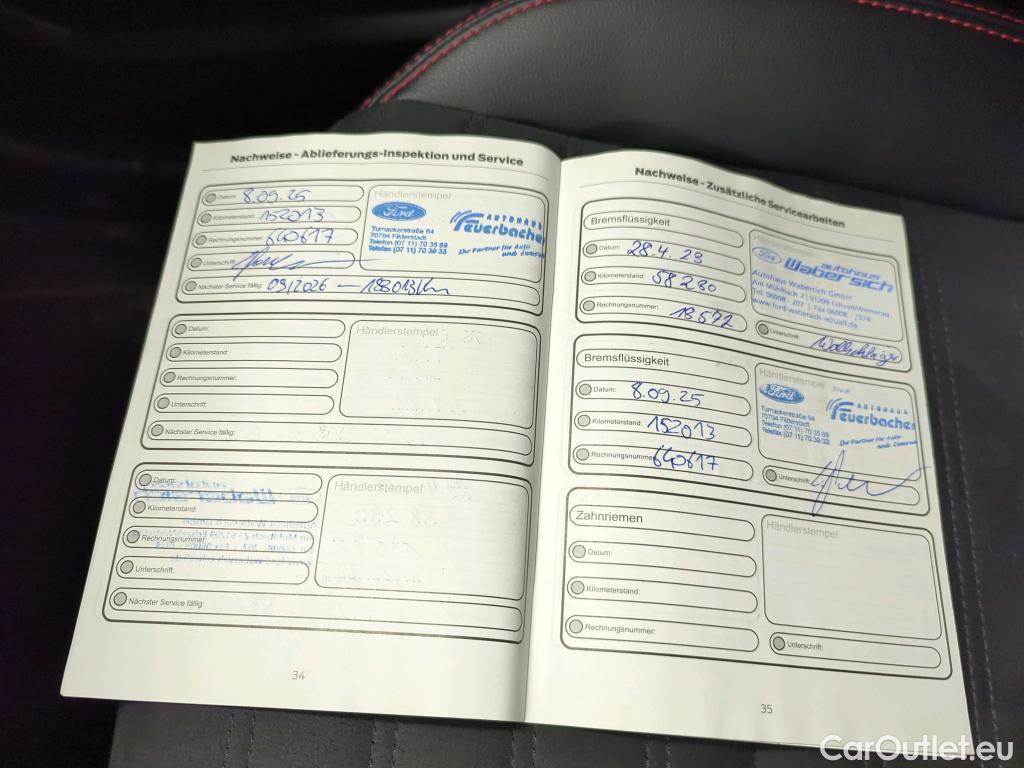 Nachweise - Ablieferungs-Inspektion und Service
Datum: 8.09.25
Kilometerstand: 152013
Rechnungsnummer: 640617
Unterschrift:
Nächster Service fällig: 09/2026 — 183013 km
Händlerstempel
Ford
AUTOHAUS
Feuerbacher
Turnackerstraße 64
70794 Filderstadt
Telefon (07 11) 70 35 69
Telefax (07 11) 70 39 33
Ihr Partner für Auto
Datum:
Kilometerstand:
Rechnungsnummer:
Unterschrift:
Nächster Service fällig:
Händlerstempel
Datum:
Kilometerstand:
Rechnungsnummer:
Unterschrift:
Nächster Service fällig:
Händlerstempel
34
Nachweise - Zusätzliche Servicearbeiten
Bremsflüssigkeit
Datum: 28.4.23
Kilometerstand: 58280
Rechnungsnummer: 18572
Händlerstempel
Ford
autohaus
Wabersich
Autohaus Wabersich GmbH
Am Mühlbach 2 | 61209 Echzell/Wetterau
Tel. 06008 - 207 | Fax 06008 - 7974
www.ford-wabersich-echzell.de
Unterschrift:
Bremsflüssigkeit
Datum: 8.09.25
Kilometerstand: 152013
Rechnungsnummer: 640617
Händlerstempel
Ford
AUTOHAUS
Feuerbacher
Turnackerstraße 64
70794 Filderstadt
Telefon (07 11) 70 35 69
Telefax (07 11) 70 39 33
Ihr Partner für Auto
Unterschrift:
Zahnriemen
Datum:
Kilometerstand:
Rechnungsnummer:
Händlerstempel
Unterschrift:
35
CarOutlet.eu